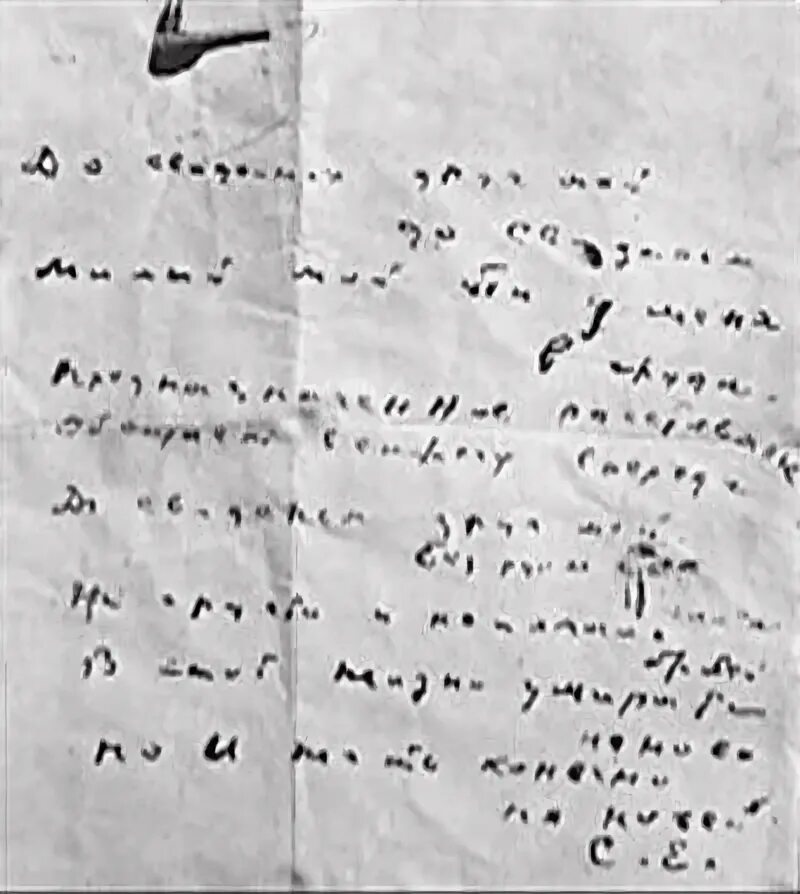 До свиданья друг мой
до свиданья
Милый мой ты
у меня
в груди
Предназначенное расставанье
Обещает встречу впереди
До свиданья друг мой
без руки
Не грусти и
В этой жизни умирать
не ново
но и жить конечно
не новей
С. Е.